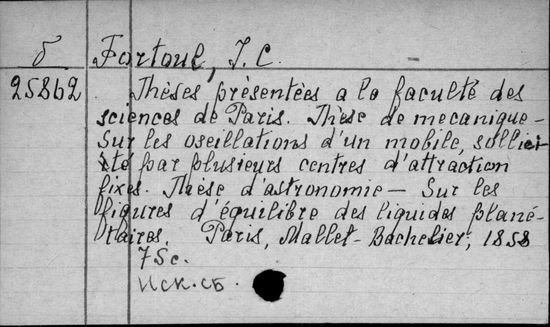 б Fortoul, J. C.
25862 Thèses présentées a la faculté des
sciences de Paris. Thèse de mecanique -
Sur les oscillations d'un mobile, sollici-
té par plusieurs centres d'attraction
fixes. Thèse d'astronomie — Sur les
figures d'équilibre des liquides plané-
taires. Paris, Mallet-Bachelier, 1858
75c.
Иск.сб.